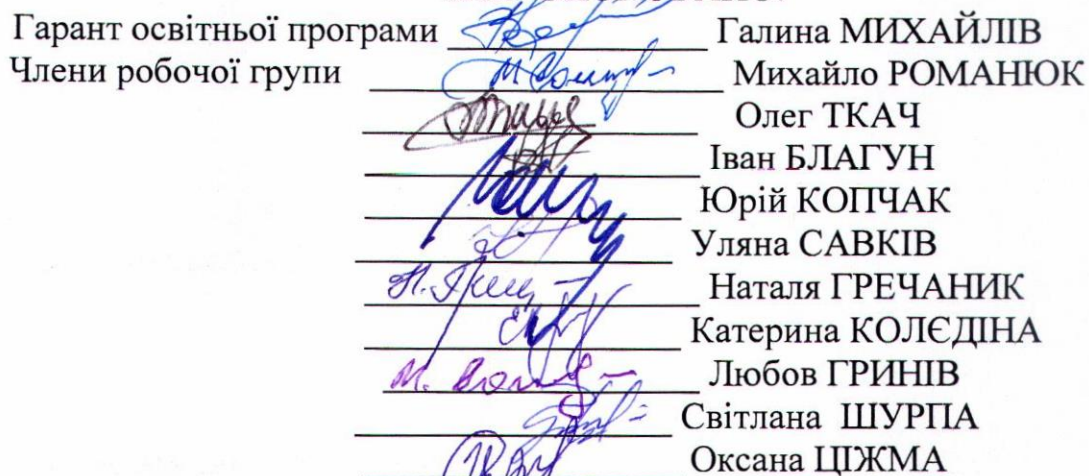 Гарант освітньої програми Галина МИХАЙЛІВ
Члени робочої групи Михайло РОМАНЮК
Олег ТКАЧ
Іван БЛАГУН
Юрій КОПЧАК
Уляна САВКІВ
Наталя ГРЕЧАНИК
Катерина КОЛЄДІНА
Любов ГРИНІВ
Світлана ШУРПА
Оксана ЦІЖМА